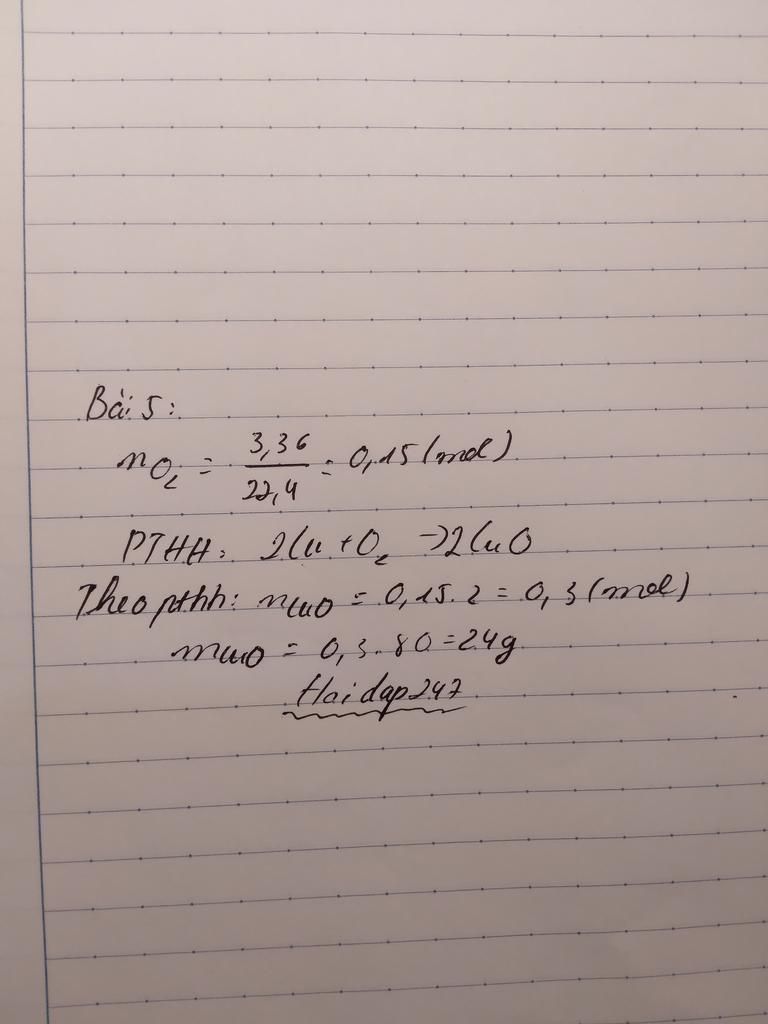 Bài 5:
nO₂ = 3,36 / 22,4 = 0,15 (mol)
PTHH: 2Cu + O₂ → 2CuO
Theo pthh: nCuO = 0,15.2 = 0,3 (mol)
mCuO = 0,3.80 = 24g
Hoidap247